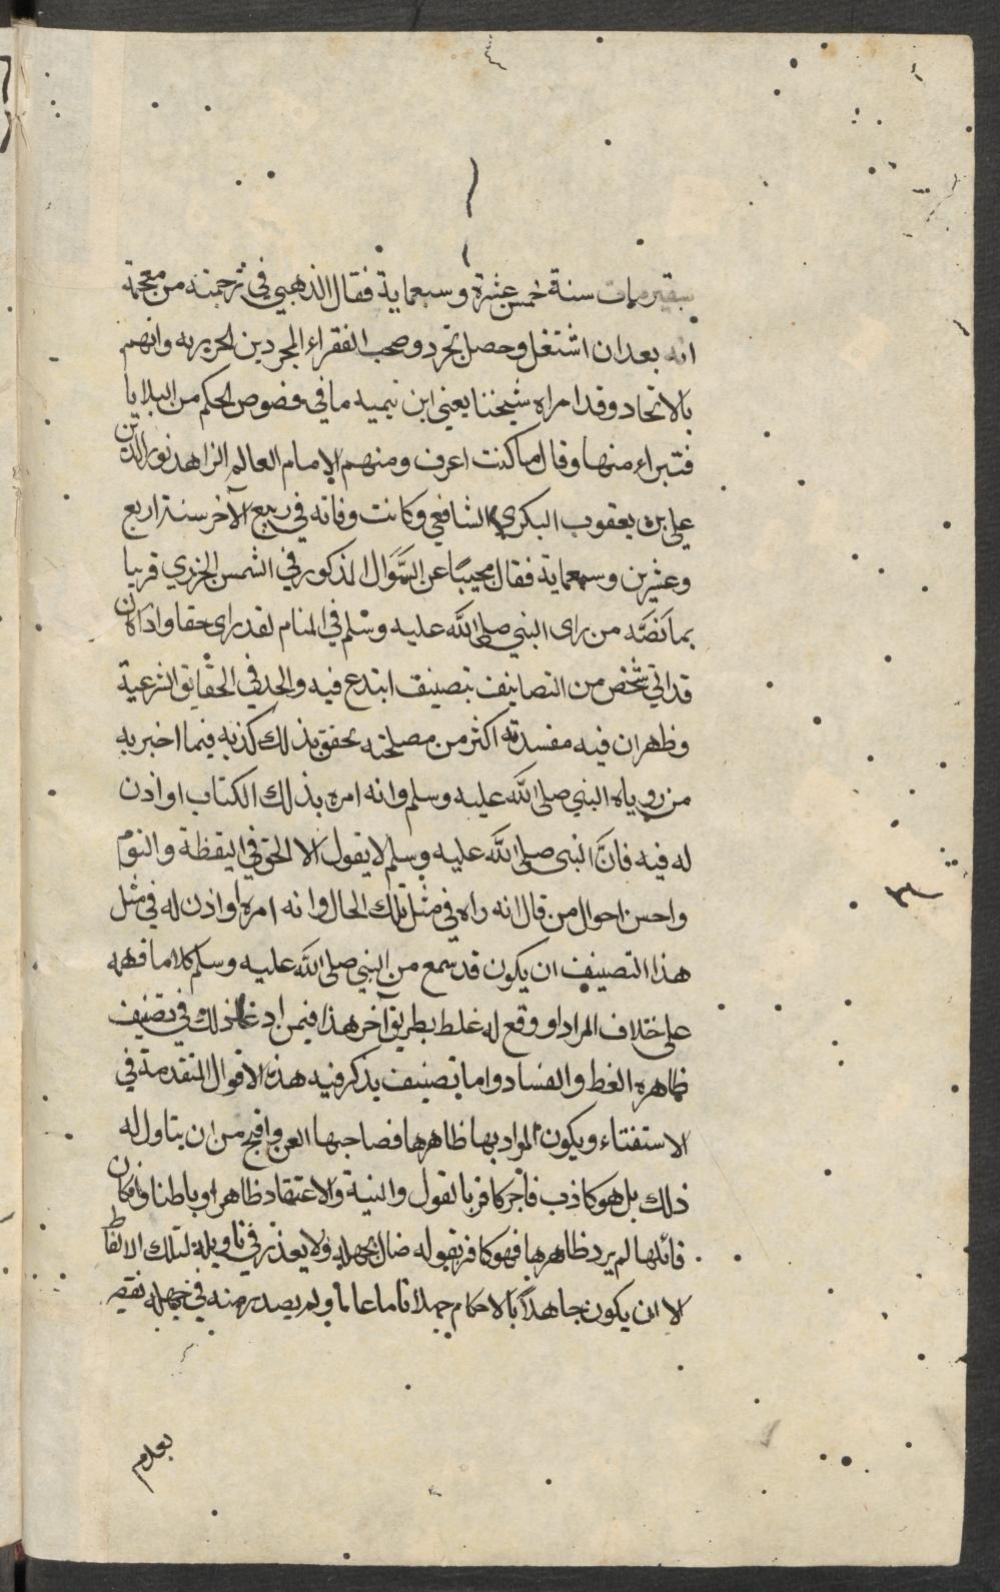 بيسير مات سنة خمس عشرة وسبعماية فقال الذهبي في ترجمته من معجمه
انه بعد ان اشتغل وحصل تجرد وصحب الفقراء المجردين الحريرية واتهم
بالاتحاد وقد امراه شيخنا يعني ابن تيميه ما في فصوص الحكم من البلايا
فتبراء منها وقال ما كنت اعرف ومنهم الامام العالم الزاهد نور الدين
علي بن يعقوب البكري الشافعي وكانت وفاته في ربيع الآخر سنة اربع
وعشرين وسبعماية فقال مجيبًا عن السَّوَال المذكور في الشمس الجزري قريبا
بما نَصَّه من راى النبي صلى الله عليه وسلم في المنام لقد راى حقا واذا كان
قد اتي شخص من التصانيف بتصنيف ابتدع فيه والحد في الحقايق الشرعية
وظهر ان فيه مفسدته اكثر من مصلحته تحقق بذلك كذبه فيما اخبر به
من روياه النبي صلى الله عليه وسلم وانه امره بذلك الكتاب او اذن
له فيه فانَّ النبي صلى الله عليه وسلم لا يقول الا الحق في اليقظة والنوم
واحسن احوال من قال انه راه في مثل تلك الحال وانه امره او اذن له في مثل
هذا التصنيف ان يكون قد سمع من النبي صلى الله عليه وسلم كلاما فهمه
على خلاف المراد او وقع له غلط بطريق آخر هذا فيمن ادعا ذلك وفي تصنيف
ظاهره الغط والفساد واما تصنيف يذكر فيه هذه الاقوال المتقدمة في
الاستفتاء ويكون المراد بها ظاهرها فصاحبها العن واقبح من ان يتاول له
ذلك بل هو كاذب فاجر كافر با لقول والنية والاعتقاد ظاهرا وباطنا وان كان
قائلها لم يرد ظاهرها فهو كافر بقوله ضال بجهله ولا يعذر في تاويله لتلك الالفاظ
الا ان يكون جاهدًا بالاحكام جهلا تاما عاما ولم يصدر منه في جهله تقصير
بعدم